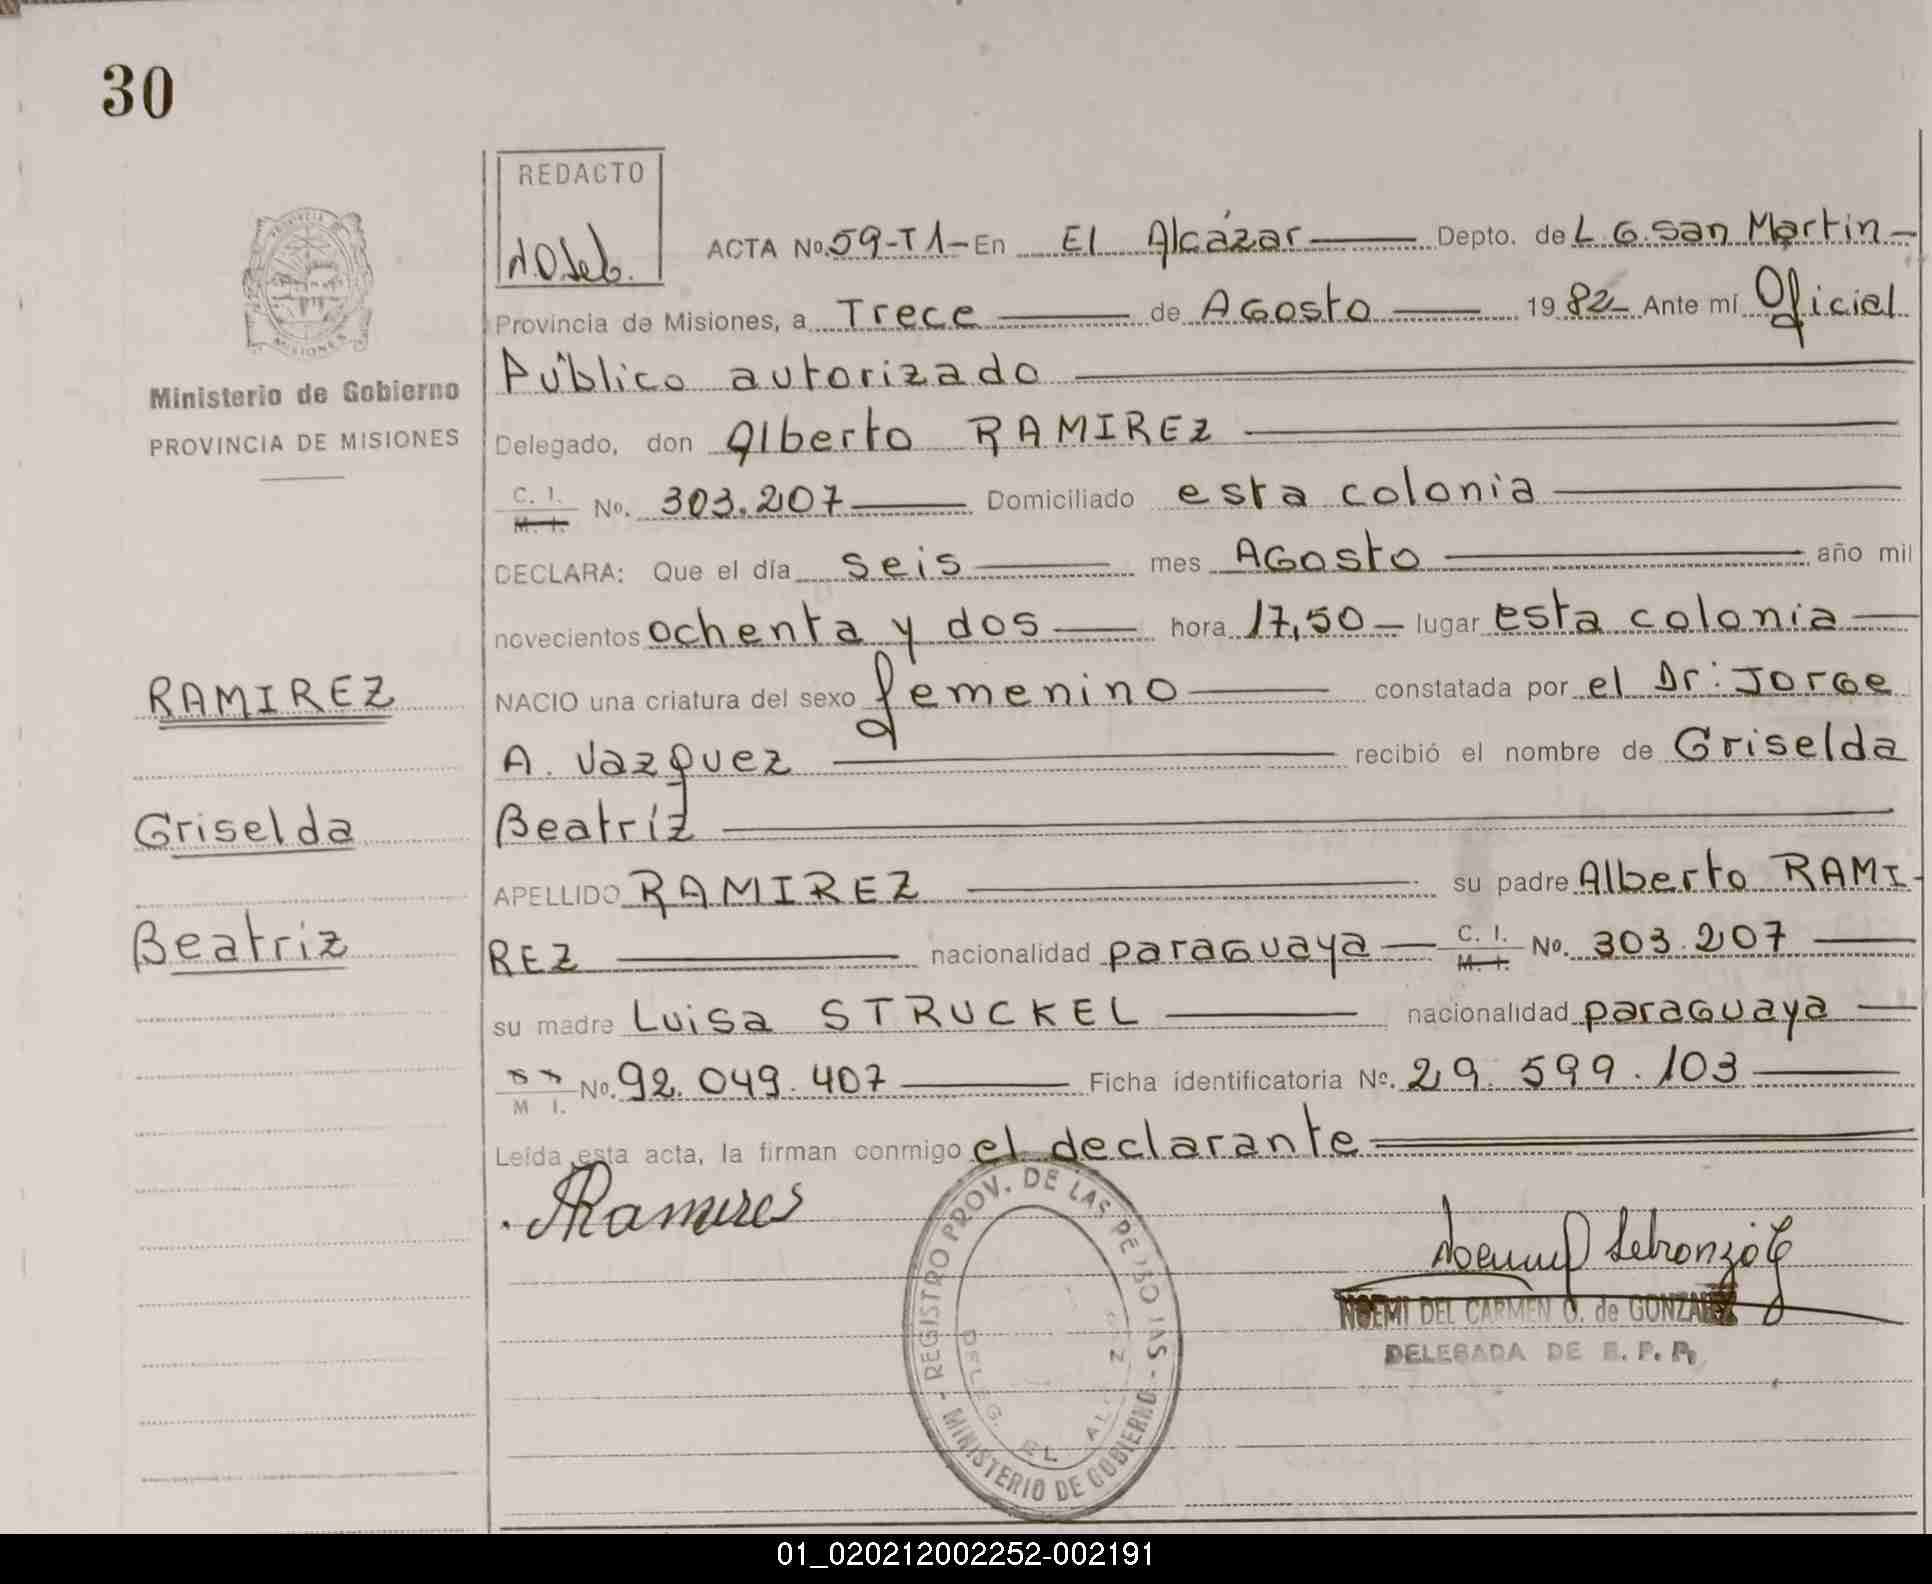 30
REDACTO
PROVINCIA
MISIONES
Ministerio de Gobierno
PROVINCIA DE MISIONES
RAMIREZ
Griselda
Beatriz
ACTA No. 59-T1- En El Alcázar Depto. de L. G. San Martin-
Provincia de Misiones, a Trece de AGosto 19 82- Ante mí Oficial
Público autorizado
Delegado, don Alberto RAMIREZ
C. I. M. I. No. 303.207 Domiciliado esta colonia
DECLARA: Que el día seis mes AGosto año mil
novecientos ochenta y dos hora 17,50 lugar esta colonia
NACIO una criatura del sexo femenino constatada por el Dr: JorGe
A. Vazquez recibió el nombre de Griselda
Beatríz
APELLIDO RAMIREZ su padre Alberto RAMI-
REZ nacionalidad paraGuaya C. I. M. I. No. 303.207
su madre Luisa STRUCKEL nacionalidad paraGuaya
M I. No. 92.049.407 Ficha identificatoria No. 29.599.103
Leída esta acta, la firman conmigo el declarante
ARamires
REGISTRO PROV. DE LAS PERSONAS - MINISTERIO DE GOBIERNO -
DELEG. EL ALCAZAR
NOEMI DEL CARMEN O. de GONZALEZ
DELEGADA DE R. P. P.
01_020212002252-002191